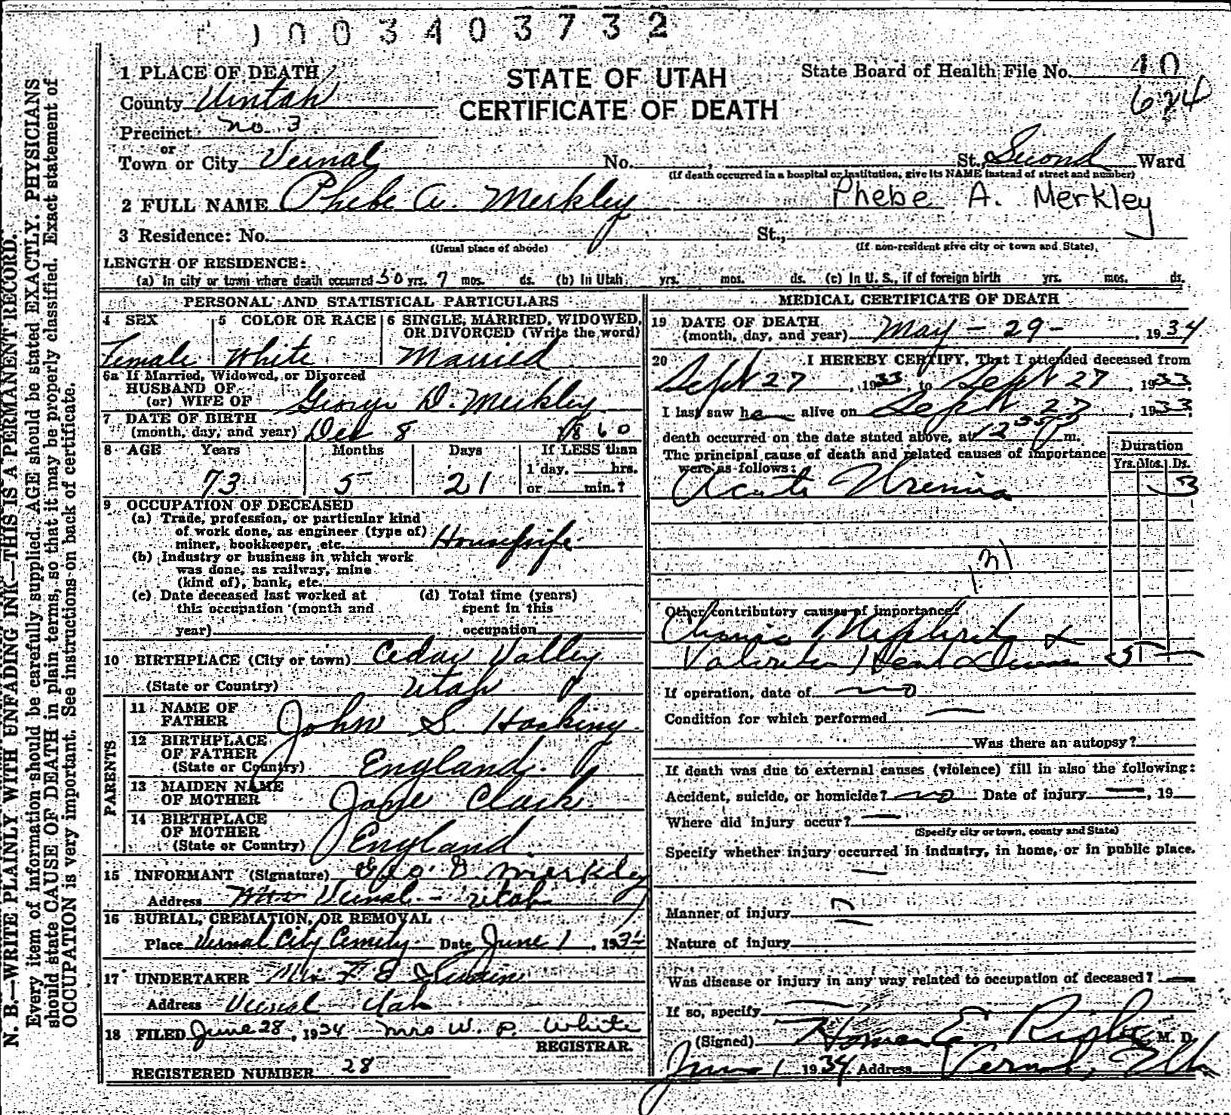 1003403732
1 PLACE OF DEATH
STATE OF UTAH
CERTIFICATE OF DEATH
State Board of Health File No. 40
624
County Uintah
Precinct No. 3
or
Town or City Vernal No. St., Second Ward
(If death occurred in a hospital or institution, give its NAME instead of street and number)
2 FULL NAME Phebe A. Merkley Phebe A. Merkley
3 Residence: No. St.,
(Usual place of abode) (If non-resident give city or town and State).
LENGTH OF RESIDENCE:
(a) In city or town where death occurred 50 yrs. 7 mos. ds. (b) In Utah yrs. mos. ds. (c) In U. S., if of foreign birth yrs. mos. ds.
PERSONAL AND STATISTICAL PARTICULARS
4 SEX 5 COLOR OR RACE 6 SINGLE, MARRIED, WIDOWED,
OR DIVORCED (Write the word)
Female White Married
6a If Married, Widowed, or Divorced
HUSBAND OF
(or) WIFE OF George D. Merkley
7 DATE OF BIRTH
(month, day, and year) Dec 8 1860
8 AGE Years Months Days If LESS than
1 day, hrs.
73 5 21 or min.?
9 OCCUPATION OF DECEASED
(a) Trade, profession, or particular kind
of work done, as engineer (type of)
miner, bookkeeper, etc. Housewife
(b) Industry or business in which work
was done, as railway, mine
(kind of), bank, etc.
(c) Date deceased last worked at (d) Total time (years)
this occupation (month and spent in this
year) occupation
10 BIRTHPLACE (City or town) Cedar Valley
(State or Country) Utah
PARENTS
11 NAME OF
FATHER John S. Hosking
12 BIRTHPLACE
OF FATHER
(State or Country) England
13 MAIDEN NAME
OF MOTHER Jane Clark
14 BIRTHPLACE
OF MOTHER
(State or Country) England
15 INFORMANT (Signature) Geo. D. Merkley
Address Vernal - Utah
16 BURIAL, CREMATION, OR REMOVAL
Place Vernal City Cemetery Date June 1, 1934
17 UNDERTAKER Mrs F E
Address Vernal Utah
18 FILED June 28, 1934 Mrs W. P. White
REGISTRAR.
REGISTERED NUMBER 28
MEDICAL CERTIFICATE OF DEATH
19 DATE OF DEATH
(month, day, and year) May - 29 - , 1934
20 I HEREBY CERTIFY, That I attended deceased from
Sept 27, 1933, to Sept 27, 1933
I last saw her alive on Sept 27, 1933
death occurred on the date stated above, at m.
The principal cause of death and related causes of importance
were as follows:
Duration
Yrs. Mos. Ds.
Acute Uremia 3
131
Other contributory causes of importance:
Chronic Nephritis &
Valvular Heart Disease 5
If operation, date of no
Condition for which performed
Was there an autopsy?
If death was due to external causes (violence) fill in also the following:
Accident, suicide, or homicide? no Date of injury , 19
Where did injury occur?
(Specify city or town, county and State)
Specify whether injury occurred in industry, in home, or in public place.
Manner of injury
Nature of injury
Was disease or injury in any way related to occupation of deceased?
If so, specify
(Signed) Homer E. Rich M. D.
June 1 1934 Address Vernal, Utah
N. B.—WRITE PLAINLY, WITH UNFADING INK—THIS IS A PERMANENT RECORD.
Every item of information should be carefully supplied. AGE should be stated EXACTLY. PHYSICIANS
should state CAUSE OF DEATH in plain terms, so that it may be properly classified. Exact statement of
OCCUPATION is very important. See instructions on back of certificate.